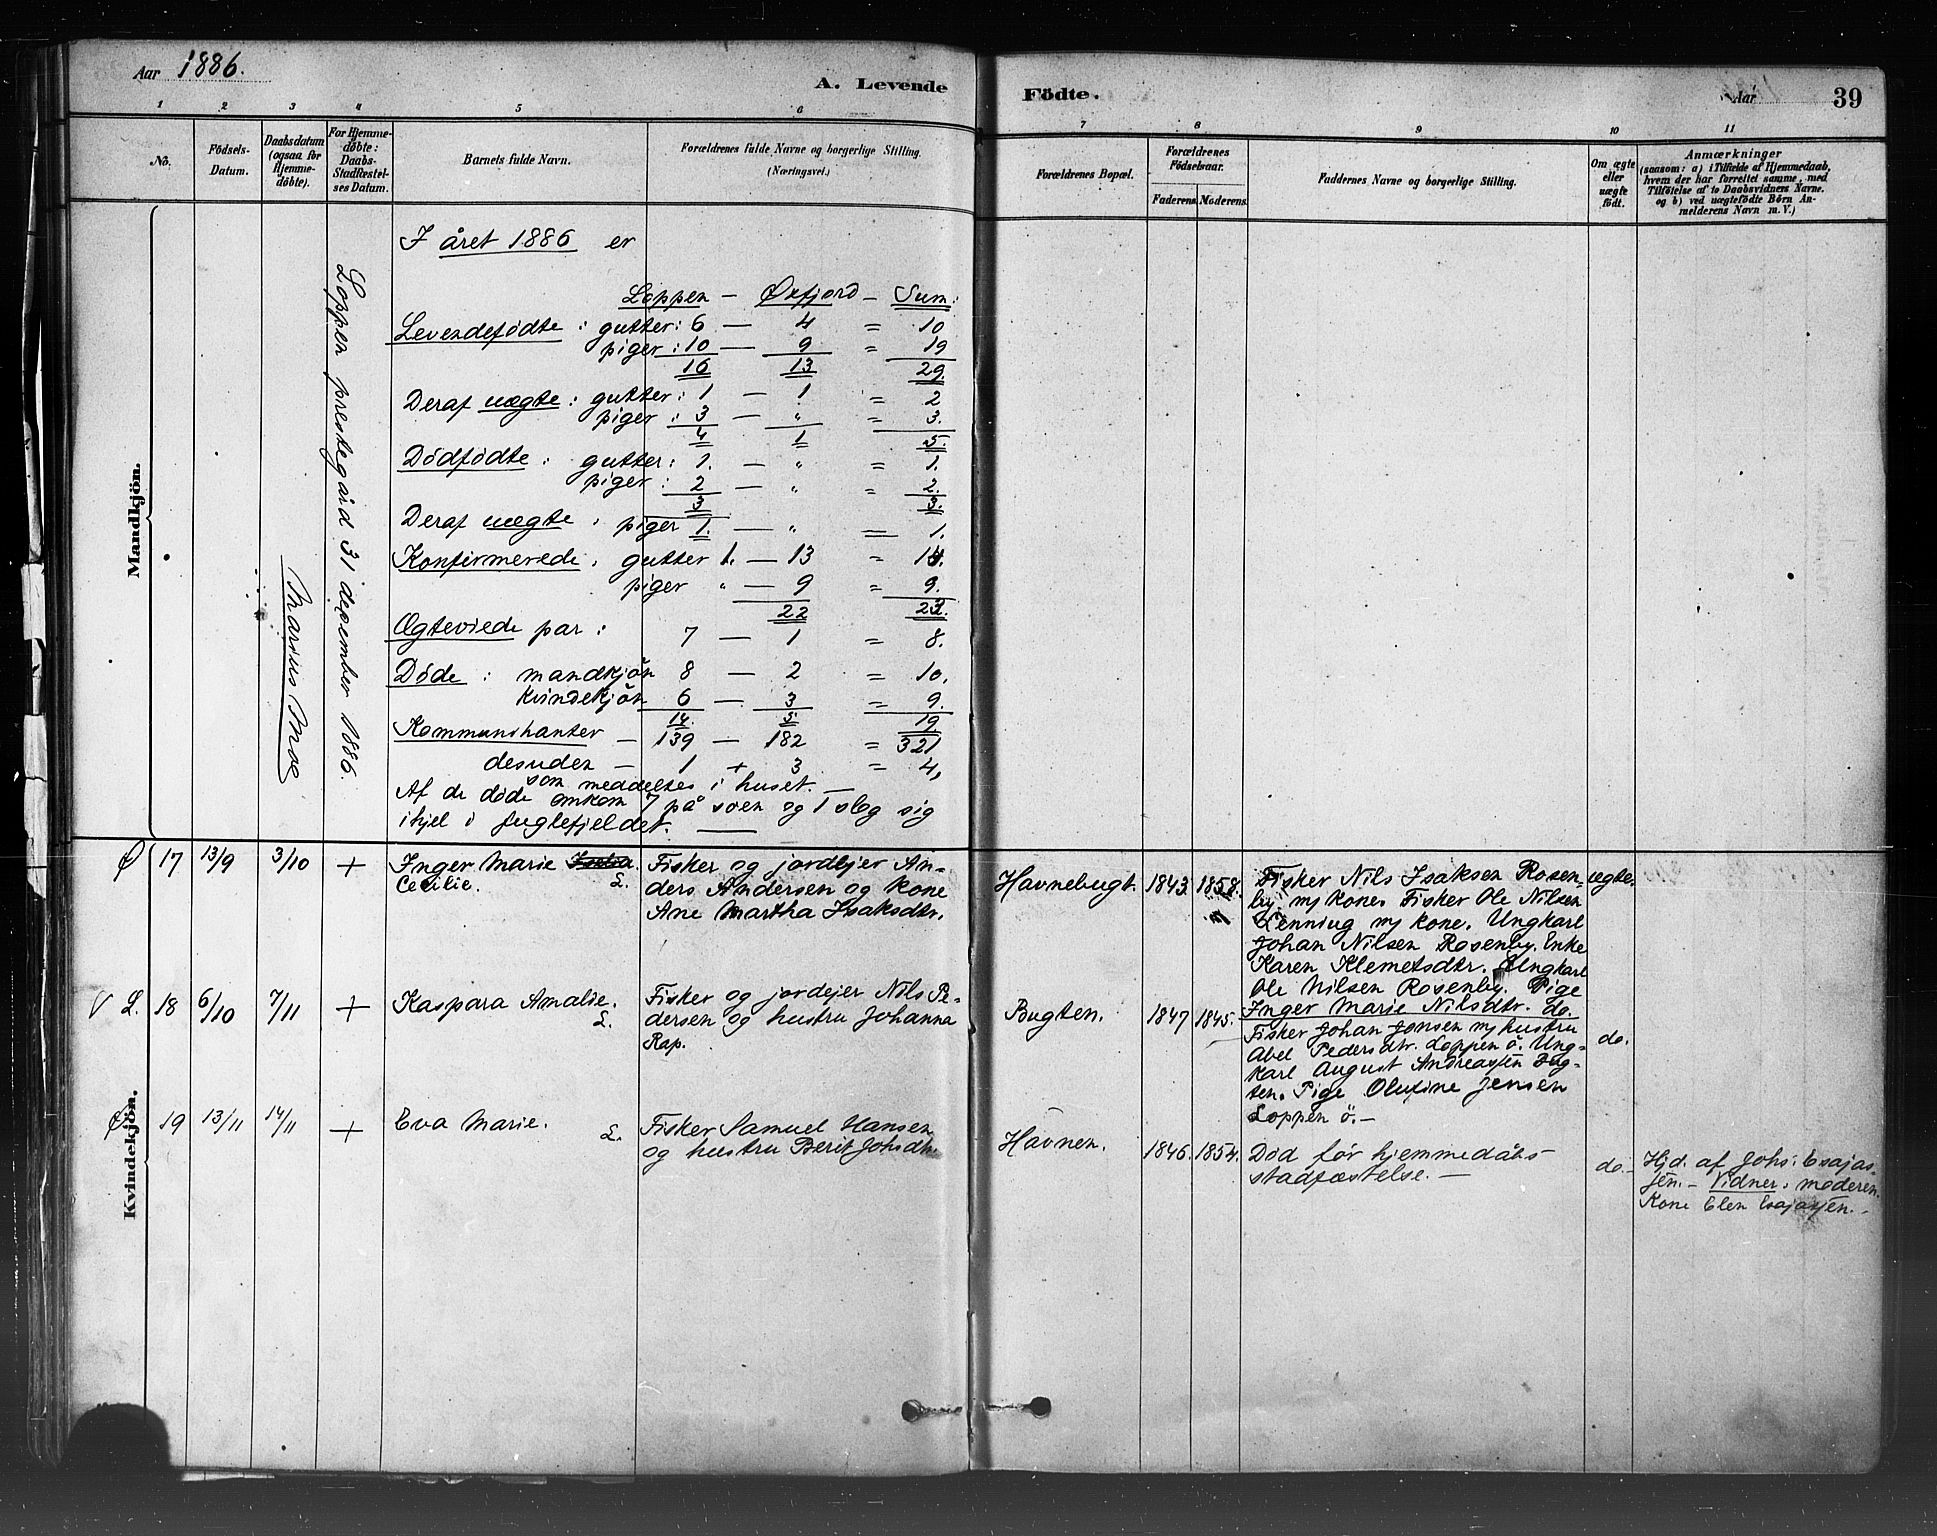 Aar 1886.
A. Levende
Födte.
Aar
39
1 2 3 4 5 6
7 8 9 10 11
No.
Födsels-
Datum.
Daabsdatum
(ogsaa for
Hjemme-
döbte).
For Hjemme-
döbte:
Daabs-
Stadfæstel-
ses Datum.
Barnets fulde Navn.
Forældrenes fulde Navne og borgerlige Stilling.
(Næringsvei.)
Forældrenes Bopæl.
Forældrenes
Födselsaar.
Faderens. Moderens.
Faddernes Navne og borgerlige Stilling.
Om ægte
eller
uægte
födt.
Anmærkninger
(saasom: a) i Tilfælde af Hjemmedaab,
hvem der har forrettet samme, med
Tilföielse af to Daabsvidners Navne.
og b) ved uægtefödte Börn An-
melderens Navn m. V.)
Mandkjön.
I året 1886 er
Loppen — Øxfjord — Sum:
Levendefødte: gutter: 6 — 4 = 10
piger: 10 — 9 = 19
16 13 29.
Deraf uægte: gutter: 1 — 1 = 2
piger: 3 — " = 3.
4 1 5.
Dødfødte: gutter: 1. — " = 1.
piger: 2 — " = 2.
3 3.
Deraf uægte, piger 1. — " = 1.
Konfirmerede, gutter 1. — 13 = 14.
piger " — 9 = 9.
22 23.
Ægteviede par: 7 — 1 = 8.
Døde: mandkjön 8 — 2 = 10.
kvindekjön 6 — 3 = 9.
14. 5 19
Kommunikanter — 139 — 182 = 321
desuden — 1 + 3 = 4,
som meddeltes i huset. —
Af de døde omkom 7 på søen og 1 slog sig
ihjel i fuglefjeldet. —
Loppen prestegård 31 desember 1886.
Marius Moe
Kvindekjön.
Ø 17 13/9 3/10 + Inger Marie
Cecilie. L.
Fisker og jordejer An-
ders Andersen og kone
Ane Martha Isaksdtr.
Havnebugt. 1843. 1858.
Fisker Nils Isaksen Rosen-
by m/ kone. Fisker Ole Nilsen
Lenning m/ kone. Ungkarl
Johan Nilsen Rosenby. Enke
Karen Klemetsdtr. Ungkarl
Ole Nilsen Rosenby. Pige
Inger Marie Nilsdtr. do.
ægte.
V L. 18 6/10 7/11 + Kaspara Amalie.
L.
Fisker og jordejer Nils Pe-
dersen og hustru Johanna
Rap.
Bugten. 1847 1845.
Fisker Johan Jonsen m/ hustru
Abel Pedersdtr. Loppen ö. Ung-
karl August Andreassen Bug-
ten. Pige Olufine Jensen
Loppen ö. —
do.
Ø 19 13/11 14/11 + Eva Marie.
L.
Fisker Samuel Hansen
og hustru Berit Johsdtr.
Havnen. 1846. 1854.
Död før hjemmedåbs-
stadfæstelse. —
do. —
Hjd. af Johs: Esajas-
sen. — Vidner: moderen.
Kone Elen Esajassen. —